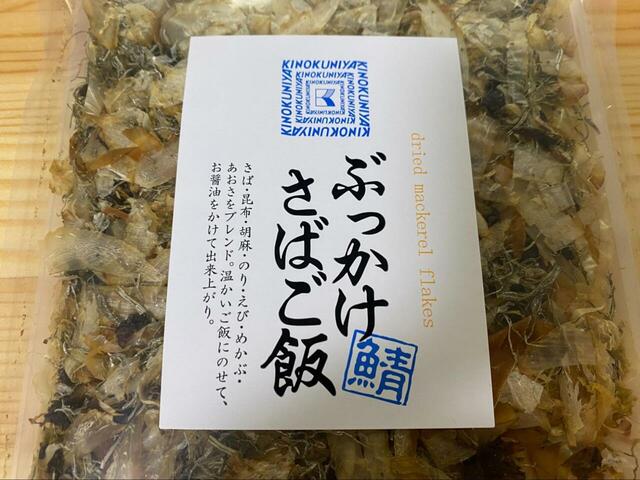 KINOKUNIYA
KINOKUNIYA
KINOKUNIYA
KINOKUNIYA
dried mackerel flakes
ぶっかけ
さばご飯
鯖
さば・昆布・胡麻・のり・えび・めかぶ・
あおさをブレンド。温かいご飯にのせて、
お醤油をかけて出来上がり。